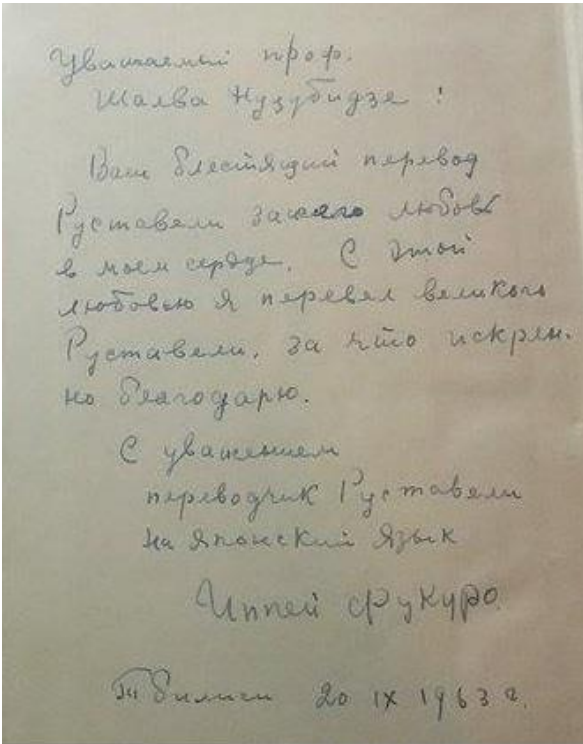 Уважаемый проф.
Шалва Нуцубидзе !
Ваш блестящий перевод
Руставели зажгло любовь
в моем сердце. С этой
любовью я перевел великого
Руставели, за что искрен-
но благодарю.
С уважением
переводчик Руставели
на японский язык
Иппей Фукуро
Тбилиси 20 IX 1963 г.